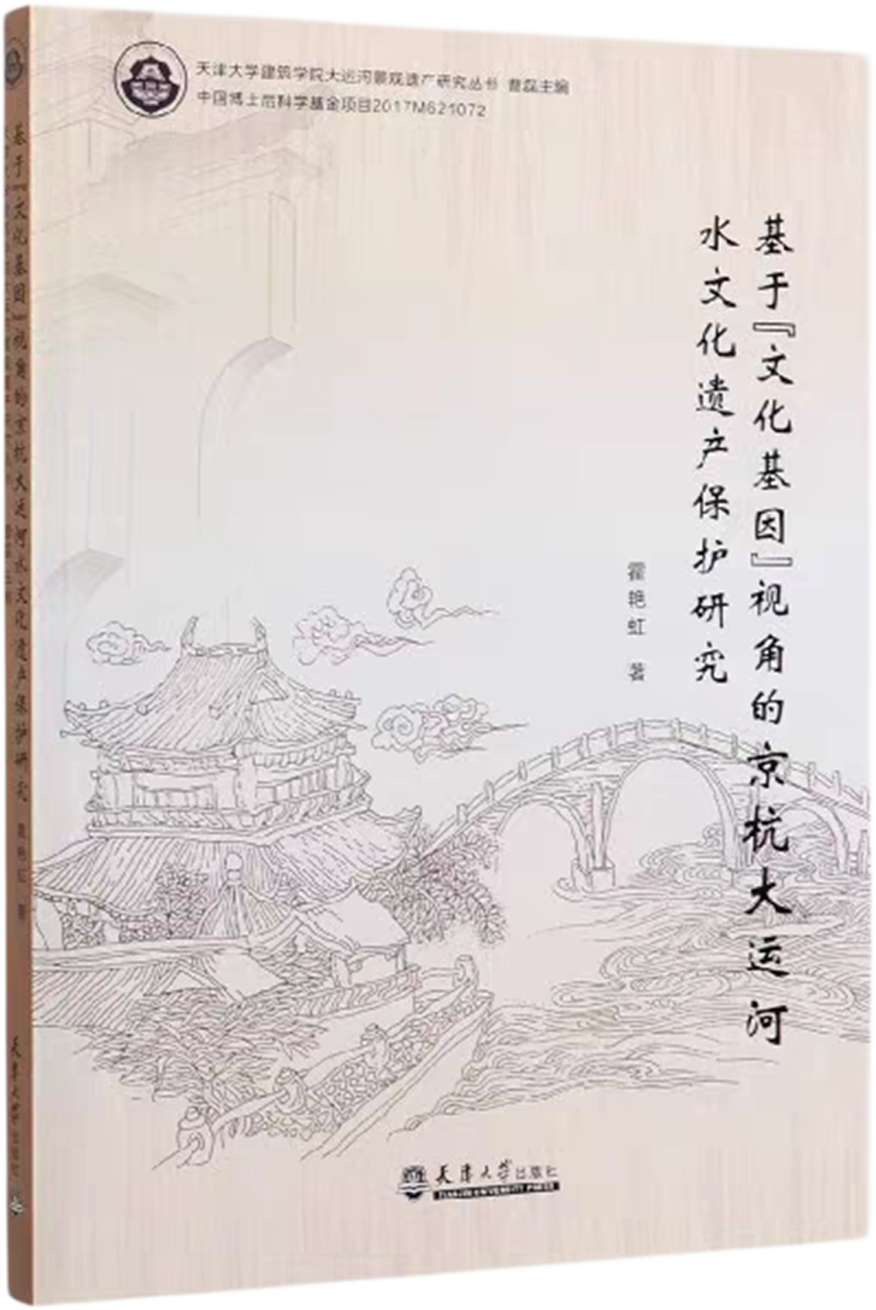 天津大学建筑学院大运河景观遗产研究丛书 曹磊主编
中国博士后科学基金项目2017M621072
基于『文化基因』视角的京杭大运河
水文化遗产保护研究
霍艳虹 著
天津大学出版社
TIANJIN UNIVERSITY PRESS
基于『文化基因』视角的京杭大运河水文化遗产保护研究
霍艳虹 著
天津大学出版社